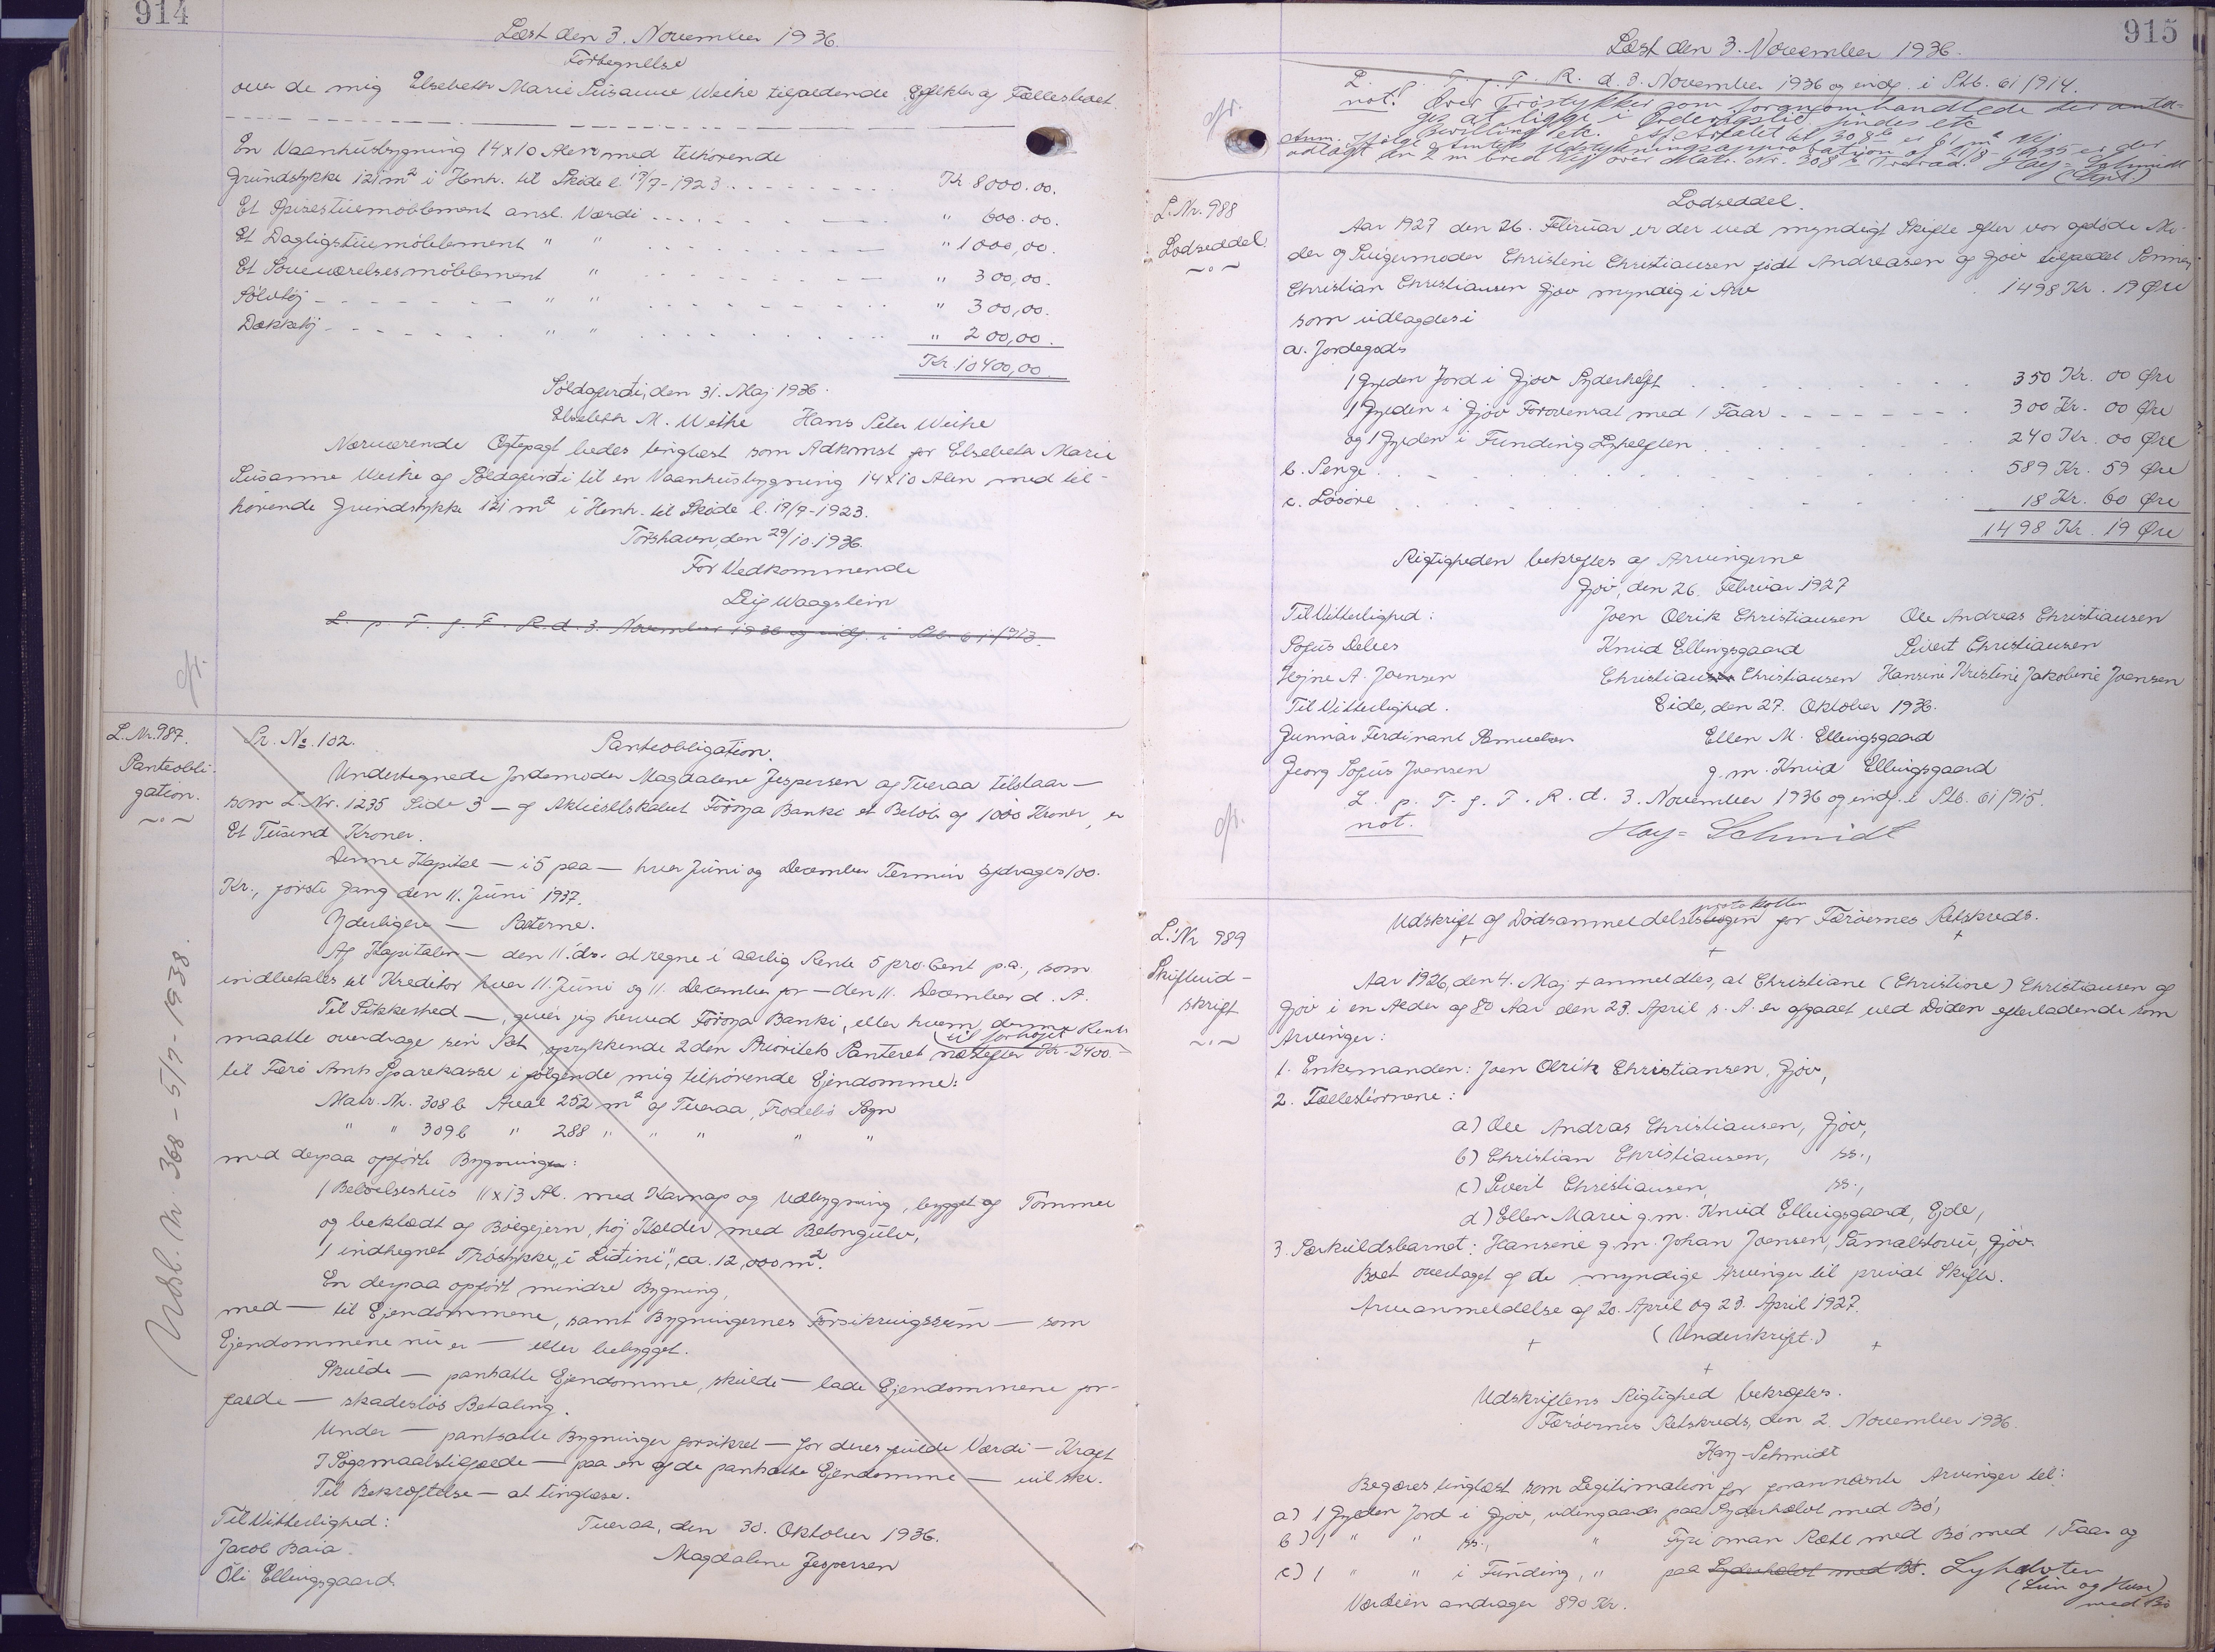 914
Læst den 3. November 1936.
Fortegnelse
over de mig Elsebeth Marie Susanne Weihe tilfaldende Effekter af Fællesboet
En Vaanhusbygning 14x10 Alen med tilhørende
Grundstykke 121 m² i Henh. til Skøde l. 19/7-1923 Kr 8000.00.
Et Spisestuemøblement ansl. Værdi " 600.00.
Et Dagligstuemøblement " " " 1000,00.
Et Soveværelsesmøblement " " 300,00.
Sølvtøj " " " 300,00.
Dækketøj " " " 200,00.
Kr. 10400,00.
Søldafjørdi, den 31. Maj 1936.
Elsebeth M. Weihe Hans Peter Weihe
Nærværende Ægtepagt bedes tinglæst som Adkomst for Elsebeth Marie
Susanne Weihe af Søldafjørdi til en Vaanhusbygning 14x10 Alen med til-
hørende Grundstykke 121 m² i Henh. til Skøde l. 19/7-1923.
Tórshavn, den 29/10.1936.
For Vedkommende
Leif Waagstein
L. p. T. f. F. R. d. 3. November 1936 og indf. i Skb. 61/913.
cfr.
L. Nr. 987.
Panteobli-
gation.
Pr. No. 102.
Panteobligation.
Undertegnede Jordemoder Magdalene Jespersen af Tveraa tilstaar —
som L. Nr. 1235 Side 3 — af Aktieselskabet Føroya Banki et Beløb af 1000 Kroner, er
Et Tusind Kroner.
Denne Kapital — i 5 paa — hver Juni og December Termin afdrages 100.
Kr., første Gang den 11. Juni 1937.
Yderligere — Sæterne.
Af Kapitalen — den 11. ds. at regne i aarlig Rente 5 pro Cent p.a., som
indbetales til Kreditor hver 11. Juni og 11. December for — den 11. December d. A.
Til Sikkerhed —, giver jeg herved Føroya Banki, eller hvem denne Bank
til forhøjet
maatte overdrage sin Ret, oprykkende 2den Prioritets Panteret næstefter Kr. 2400.—
til Færø Amts Sparekasse i følgende mig tilhørende Ejendomme:
Matr. Nr. 308 b Areal 252 m² af Tveraa, Frodebø Sogn
" " 309 b " 288 " " " " "
med derpaa opførte Bygninger:
1 Beboelseshus 11x13 Al. med Karnap og Udbygning, bygget af Tømmer
og beklædt af Bølgejern, høj Kælder med Betongulv,
1 indhegnet Trøstykke, "i Lidini", ca. 12,000 m².
En derpaa opført mindre Bygning,
med — til Ejendommene, samt Bygningernes Forsikringssum — som
Ejendommene nu er — eller bebygget.
Skulde — pantsatte Ejendomme, skulde — lade Ejendommene for-
falde — skadesløs Betaling.
Under — pantsatte Bygninger forsikret — for deres fulde Værdi — Kraft
I Søgsmaalstilfælde — paa en af de pantsatte Ejendomme — vil ske.
Til Bekræftelse — at tinglæse.
Til Vitterlighed:
Tveraa, den 30. Oktober 1936.
Jacob Baia.
Magdalene Jespersen
Óli Ellingsgaard
Udsl. Nr. 368 - 5/7 - 1938.
915
Læst den 3. November 1936.
L. p. T. f. F. R. d. 3. November 1936 og indf. i Skb. 61/914.
not: Over Trøstykker som foranomhandlede der anta-
ges at ligge i findes etc
Bevilling etc. Af Arealet til 308 b er 61 m² Vej.
Anm. Ifølge Amtets Udstykningsapprobation af 21/8 1935 er der
udlagt en 2 m bred Vej over Matr. Nr. 308 b Tveraa. Høy-Schmidt
cfr.
L. Nr. 988
Lodseddel.
Lodseddel.
Aar 1927 den 26. Februar er der ved myndigt Skifte efter vor afdøde Mo-
der og Svigermoder Christine Christiansen født Andreasen af Gjov tilfaldet Sønnen
Christian Christiansen Gjov myndig i Arv 1498 Kr. 19 Øre
som udlagdes i
a. Jordegods
1 Gylden Jord i Gjov Syderhelft 350 Kr. 00 Øre
1 Gylden i Gjov Forovenrat med 1 Faar 300 Kr. 00 Øre
og 1 Gylden i Funding Lyhelften 240 Kr. 00 Øre
b. Penge 589 Kr. 59 Øre
c. Løsøre 18 Kr. 60 Øre
1498 Kr. 19 Øre
Rigtigheden bekræftes af Arvingerne
Gjov, den 26. Februar 1927
Til Vitterlighed: Joen Olrik Christiansen Ole Andreas Christiansen
Sofus Debes Knud Ellingsgaard Sivert Christiansen
Høgne A. Joensen Christian Christiansen Hansine Kristine Jakobine Joensen
Til Vitterlighed. Eide, den 27. Oktober 1936.
Gunnar Ferdinant Samuelsen Ellen M. Ellingsgaard
Georg Sofus Joensen g.m. Knud Ellingsgaard
L. p. T. f. F. R. d. 3. November 1936 og indf. i Skb. 61/915.
not. Høy-Schmidt
cfr.
L. Nr 989
Skifteud-
skrift
protokollen
Udskrift af Dødsanmeldelsesbogen for Færøernes Retskreds.
Aar 1926, den 4. Maj + anmeldtes, at Christiane (Christine) Christiansen af
Gjov i en Alder af 80 Aar den 23. April s. A. er afgaaet ved Døden efterladende som
Arvinger:
1. Enkemanden: Joen Olrik Christiansen, Gjov,
2. Fællesbørnene:
a) Ole Andras Christiansen, Gjov,
b) Christian Christiansen, ss.,
c) Sivert Christiansen, ss.,
d) Ellen Marie g.m. Knud Ellingsgaard, Ejde,
3. Særkuldsbarnet: Hansene g.m. Johan Joensen, Sámalstovu, Gjov.
Boet overtaget af de myndige Arvinger til privat Skifte.
Arveanmeldelse af 20. April og 23. April 1927.
(Underskrift.)
Udskriftens Rigtighed bekræftes.
Færøernes Retskreds, den 2. November 1936.
Høy-Schmidt
Begæres tinglæst som Legitimation for forannævnte Arvinger til:
a) 1 Gylden Jord i Gjov, udengaards paa Syderhalvt med Bø,
b) 1 " " ss., " Fyri oman Rætt med Bø med 1 Faar og
c) 1 " " i Funding, " paa Syderhalvt med Bø. Lyhalvten
(Lún og Húsa)
med Bø
Værdien andrager 890 Kr.